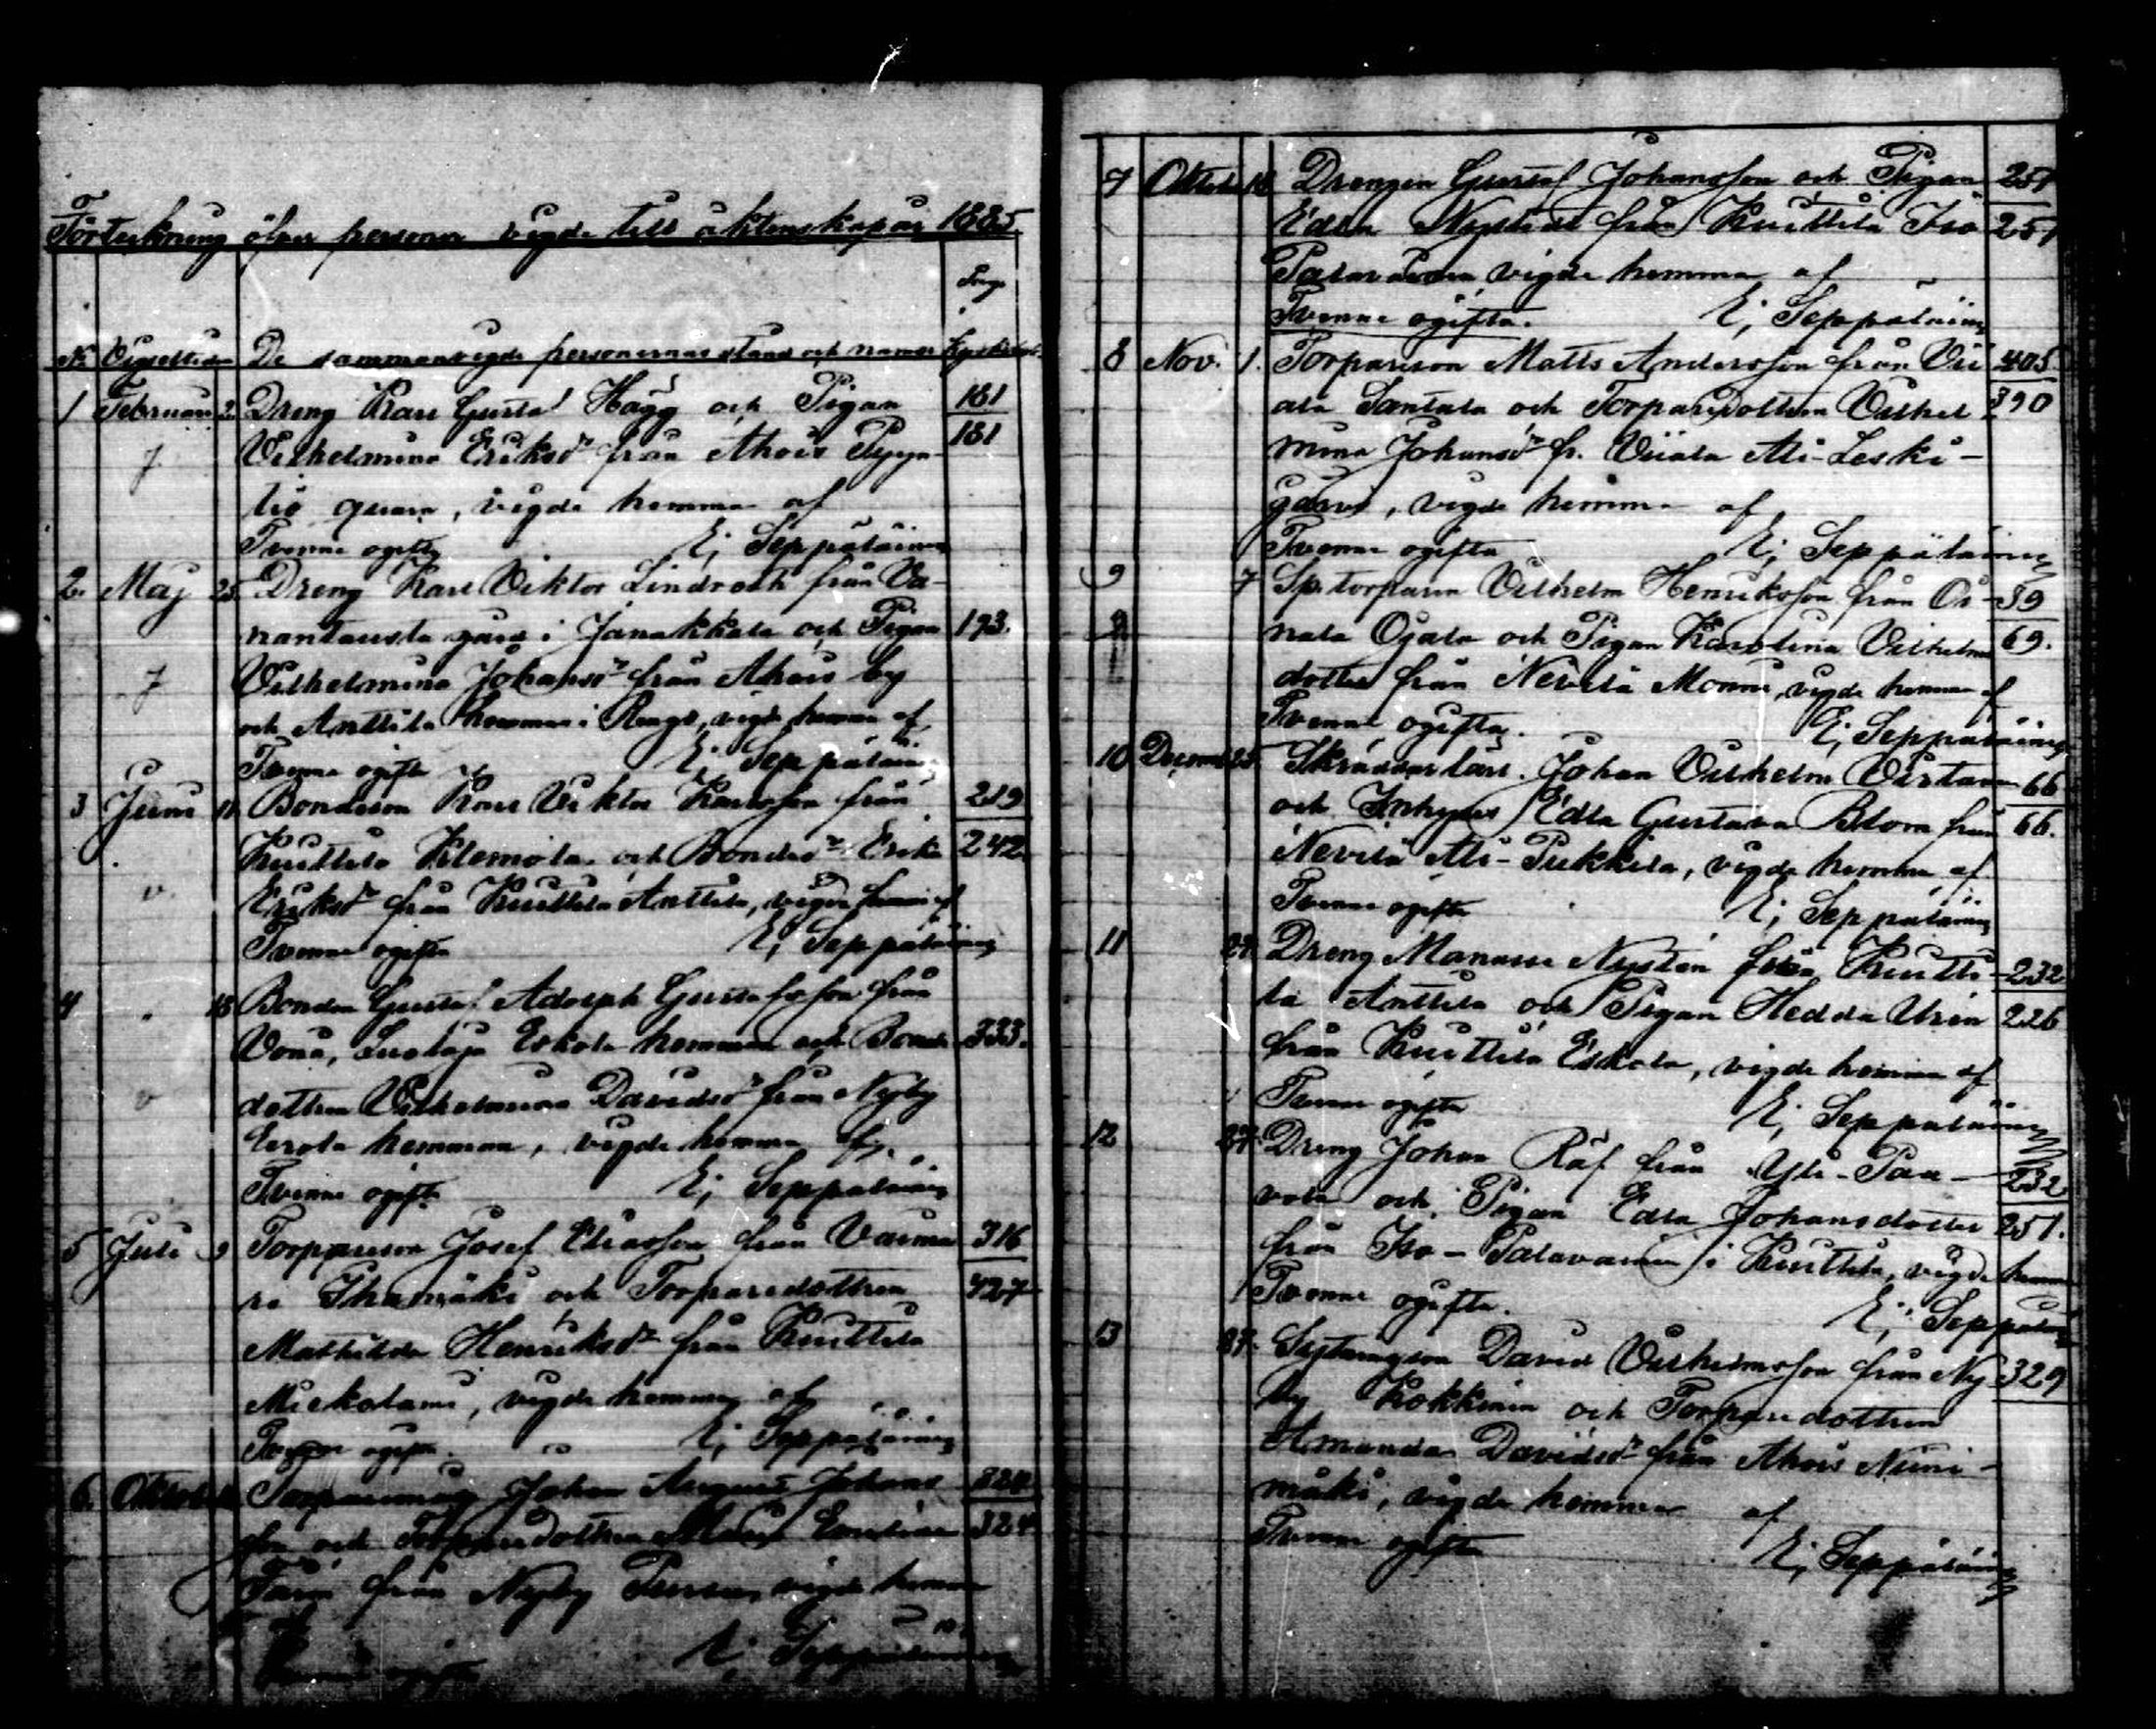 Förteckning öfver personer vigde till äktenskap år 1885.
Pag. i
No Vigseltiden De sammanvigde personernas stånd och namn Kyrkobok.
1 Februari 2. Dreng Karl Gustaf Hägg och Pigan 181
Vilhelmina Eriksdr från Ahois Pyyn- 181
tiö qvarn, vigde hemma af
Tvenne ogifta Ej Seppäläinen
2. Maj 25 Dreng Karl Viktor Lindroth från Va-
nantausta gård i Janakkala och Pigan 193.
Vilhelmina Johansdr från Ahois by
och Anttila hemman i Rengo, vigde hemma af
Tvenne ogifta Ej Seppäläinen
3 Juni 11 Bondeson Karl Viktor Karlsson från 219
Kuittila Klemola och Bondedr Erika 242
Eriksdr från Kuittila Anttila, vigde hemma af
Tvenne ogifta Ej Seppäläinen
4 18 Bonden Gustaf Adolph Gustafsson från
Vonå, Eskola hemman och Bonde- 333.
dottren Vilhelmina Davidsdr från Nyby
Eerola hemman, vigde hemma af
Tvenne ogifta Ej Seppäläinen
5 Juli 9 Torpareson Josef Eliasson från Vaima- 316
ri Ihamäki och Torparedottren 427
Mathilda Henriksdr från Kuittila
Mickolami, vigde hemma af
Tvenne ogifta. Ej Seppäläinen
6. Oktob. Johan August Johans- 324
son och Torparedottren Maria Emilia 324
från Nyby vigde hemma
af
Tvenne ogifta Ej Seppäläinen
7 Oktob. 18 Drengen Gustaf Johansson och Pigan 251
Edla Nystedt från Kuittila Iso 251
Palavainen vigde hemma af
Tvenne ogifta. Ej Seppäläinen
8 Nov. 1. Torpareson Matts Andersson från Vii- 405
ala Santala och Torparedottren Vilhel- 390
mina Johansdr fr. Viiala Ali-Leski-
gård, vigde hemma af
Tvenne ogifta Ej Seppäläinen
9 7 Sp. torparen Vilhelm Henriksson från Oi- 39
nala Ojala och Pigan Karolina Vilhelms 69.
dotter från Nevilä Monni, vigde hemma af
Tvenne ogifta. Ej Seppäläinen
10 Decemb 25 Skräddarlärl. Johan Vilhelm Virtanen 66
och Inhyses Edla Gustava Blom från 66.
Nevilä Ali-Pukkila, vigde hemma af
Tvenne ogifta Ej Seppäläinen
11 27. Dreng Manasse Nystén från Kuitti- 232
la Anttila och Pigan Hedda Urén 226
från Kuittila Eskola, vigde hemma af
Tvenne ogifta Ej Seppäläinen
12 27. Dreng Johan Räf från Yli-Paa- 232
vola och Pigan Edla Johansdotter 251.
från Iso-Palavainen i Kuittila, vigde hemma
Tvenne ogifta. Ej Seppäläinen
13 27. Sytningson David Vilhelmsson från Ny- 329
by Kokkinen och Torparedottren
Amanda Davidsdr från Ahois Niini-
mäki, vigde hemma af
Tvenne ogifta Ej Seppäläinen